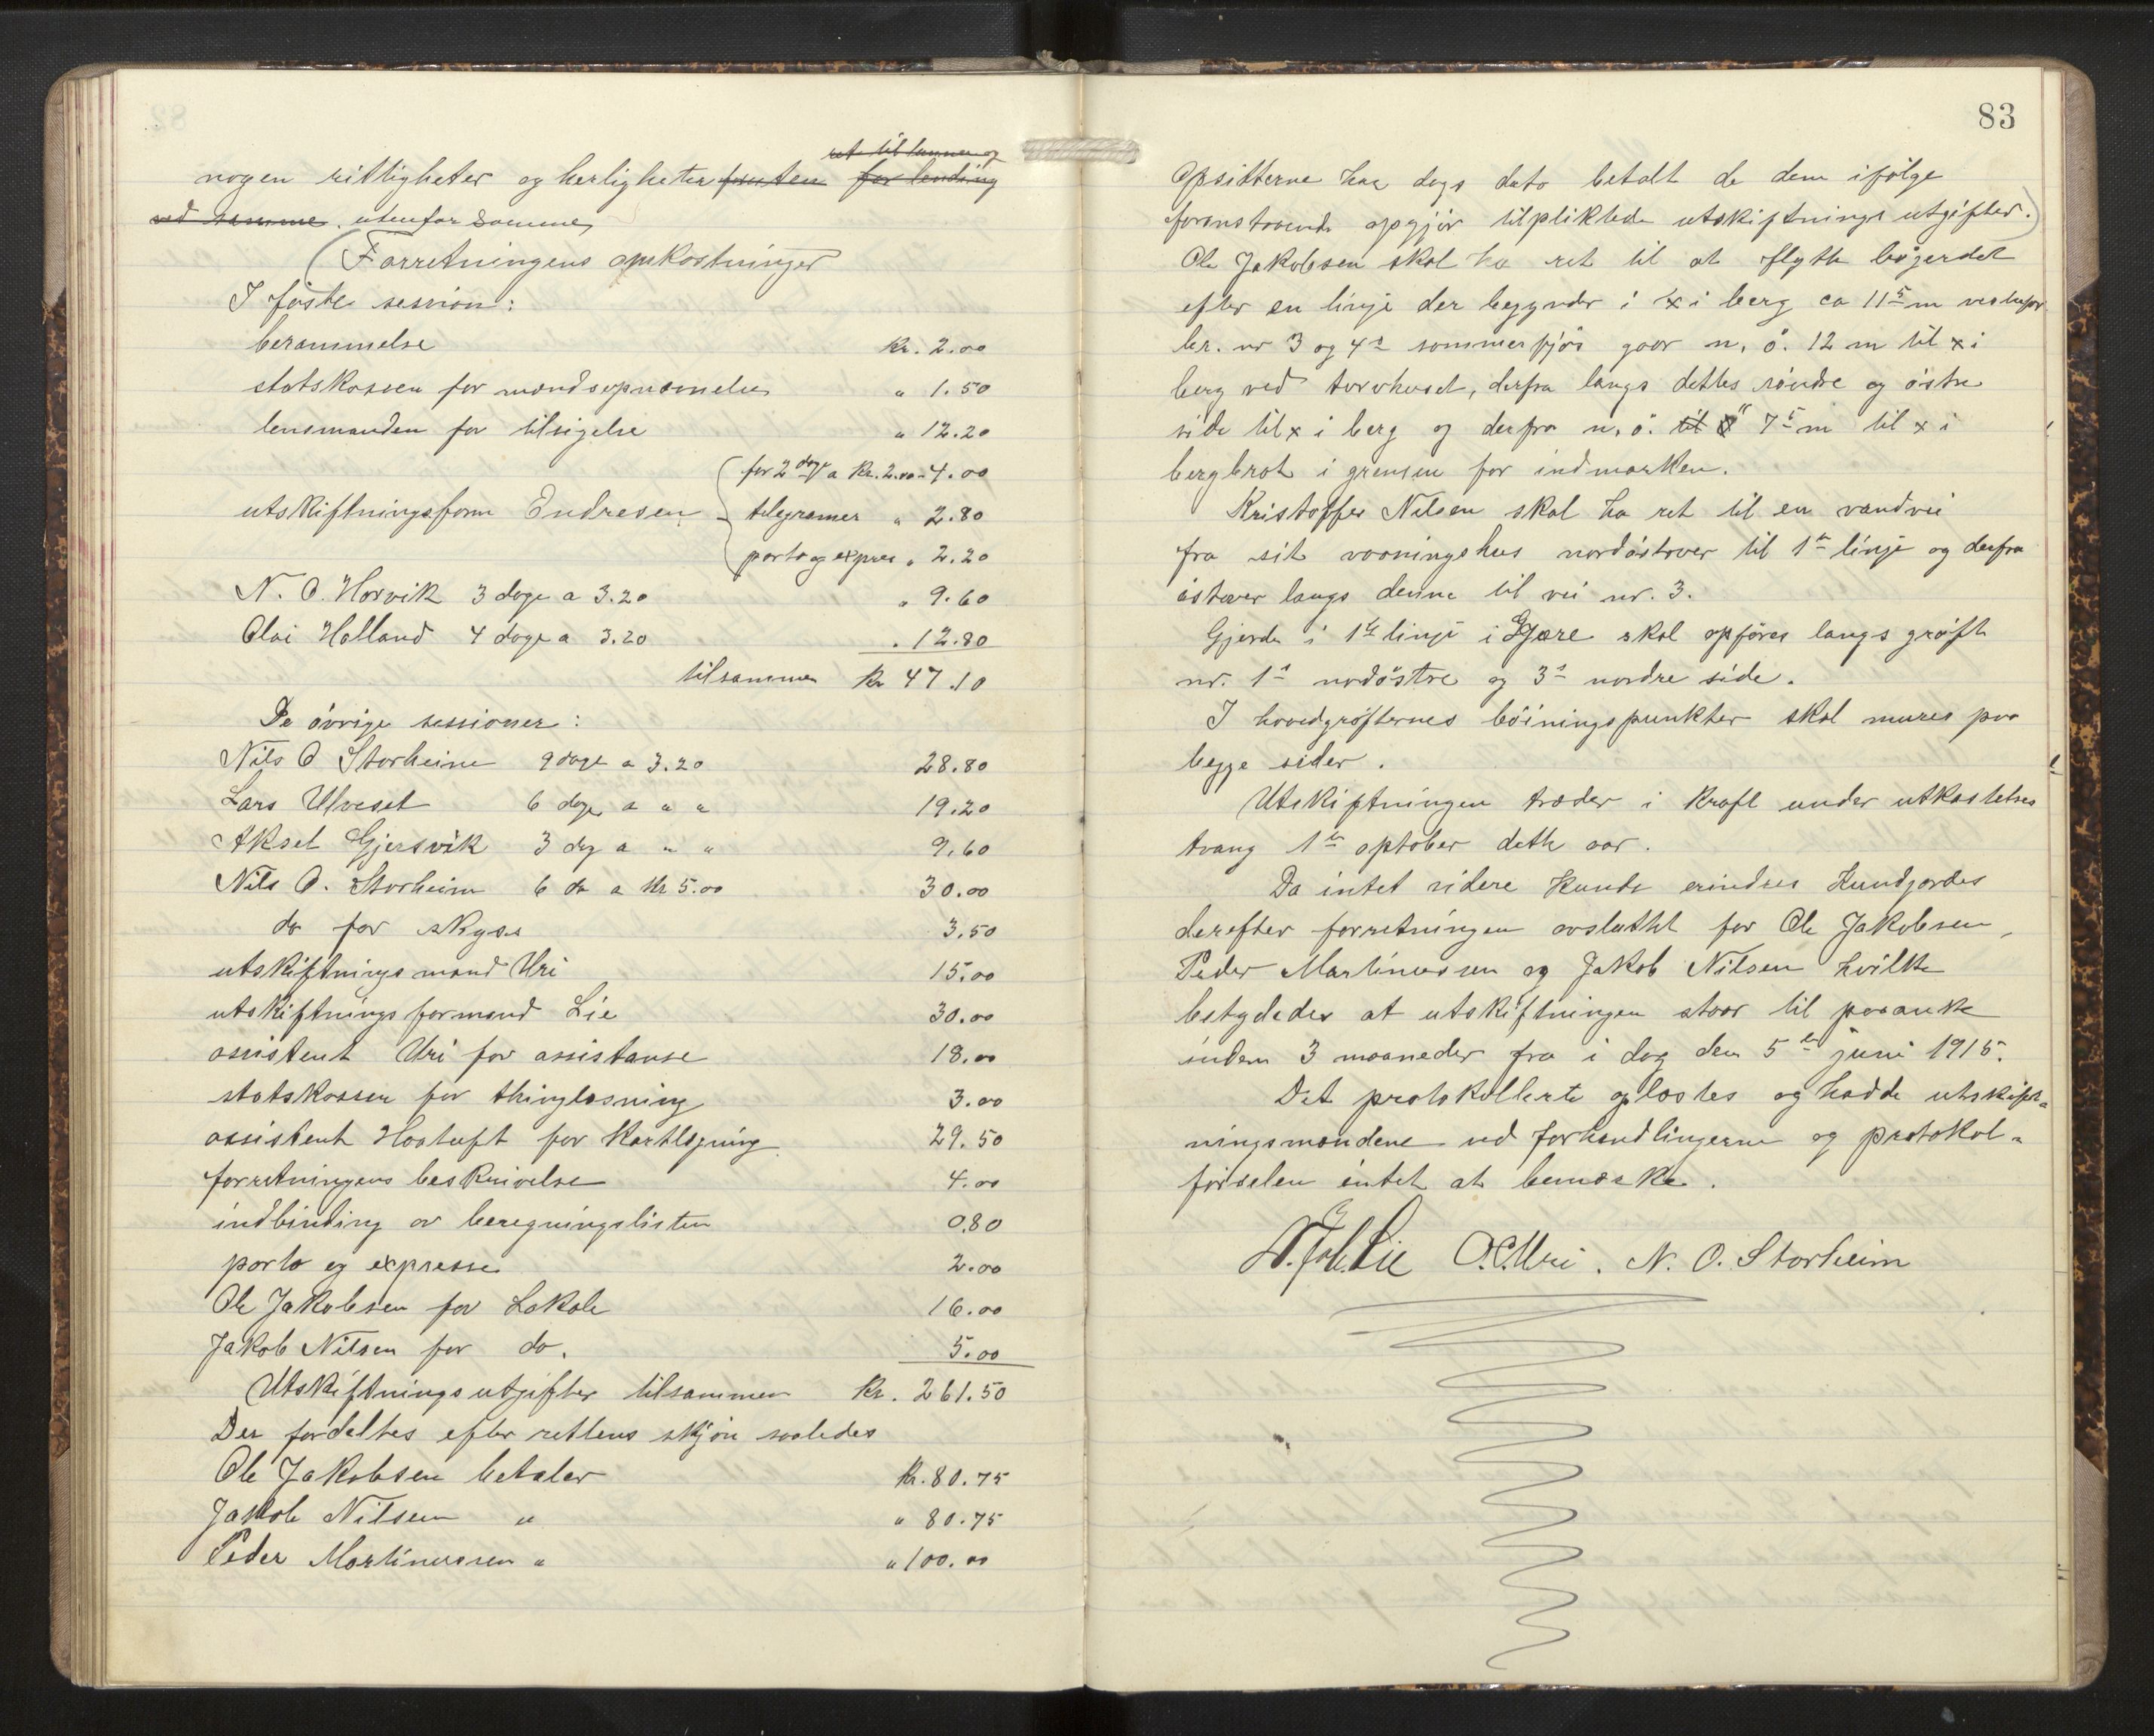 ret til lunner og
nogen rettigheter og herligheter foruten for lending
ved samme. utenfor samme,
(Forretningens omkostninger
I føste session:
berammelse kr. 2.00
statskassen for mandsopnævnelse " 1.50
lensmanden for tilsigelse " 12.20
for 2 dage a kr. 2.00 = 4.00
utskiftningsform Endresen telegramer " 2.80
porto og expres " 2.20
N. O. Horvik 3 dage a 3.20 " 9.60
Olai Holland 4 dage a 3.20 " 12.80
tilsammen kr 47.10
De øvrige sessioner:
Nils O Storheim 9 dage a 3.20 28.80
Lars Ulveset 6 dage a " " 19.20
Aksel Gjersvik 3 dag a " " 9.60
Nils O. Storheim 6 do a kr 5.00 30.00
do for skyss 3.50
utskiftningsmand Uri 15.00
utskiftningsformand Lie 30.00
assistent Uri for assistanse 18.00
statskassen for thinglæsning 3.00
assistent Hostuft for kartlægning 29.50
forretningens beskrivelse 4.00
indbinding av beregningslisten 0.80
porto og expresse 2.00
Ole Jakobsen for Lokale 16.00
Jakob Nilsen for do. 5.00
Utskiftningsutgifter tilsammen kr. 261.50
Der fordeltes efter rettens skjøn saaledes
Ole Jakobsen betaler kr. 80.75
Jakob Nilsen " " 80.75
Peder Martinussen " " 100.00
83
Opsitterne har dags dato betalt de dem ifølge
foranstaaende opgjør tilpliktede utskiftningsutgifter.)
Ole Jakobsen skal ha ret til at flytte bøgerdet
efter en linje der begynder i x i berg ca 11 5 m vestenfor
br. nr 3 og 4s sommerfjøs gaar n. ø. 12 m til x i
berg ved torvhuset, derfra langs dettes søndre og østre
side til x i berg og derfra n. ø. til 8 7 5 m til x i
bergbrot i grensen for indmarken.
Kristoffer Nilsen skal ha ret til en vandvei
fra sit vaaningshus nordøstover til 1te linje og derfra
østover langs denne til vei nr. 3.
Gjerde i 1te linje i Gjære skal opføres langs grøft
nr. 1s nordøstre og 3s nordre side.
I hovedgrøfternes bøiningspunkter skal mures paa
begge sider.
Utskiftningen træder i kraft under utkastelses
tvang 1te oktober dette aar.
Da intet videre kunde erindres kundgjordes
derefter forretningen avsluttet for Ole Jakobsen,
Peder Martinussen og Jakob Nilsen hvilke
betydedes at utskiftningen staar til paaanke
inden 3 maaneder fra i dag den 5te juni 1915.
Det protokollerte oplæstes og hadde utskift-
ningsmændene ved forhandlingerne og protokol-
førselen intet at bemærke.
Lie O. Uri. N. O. Storheim